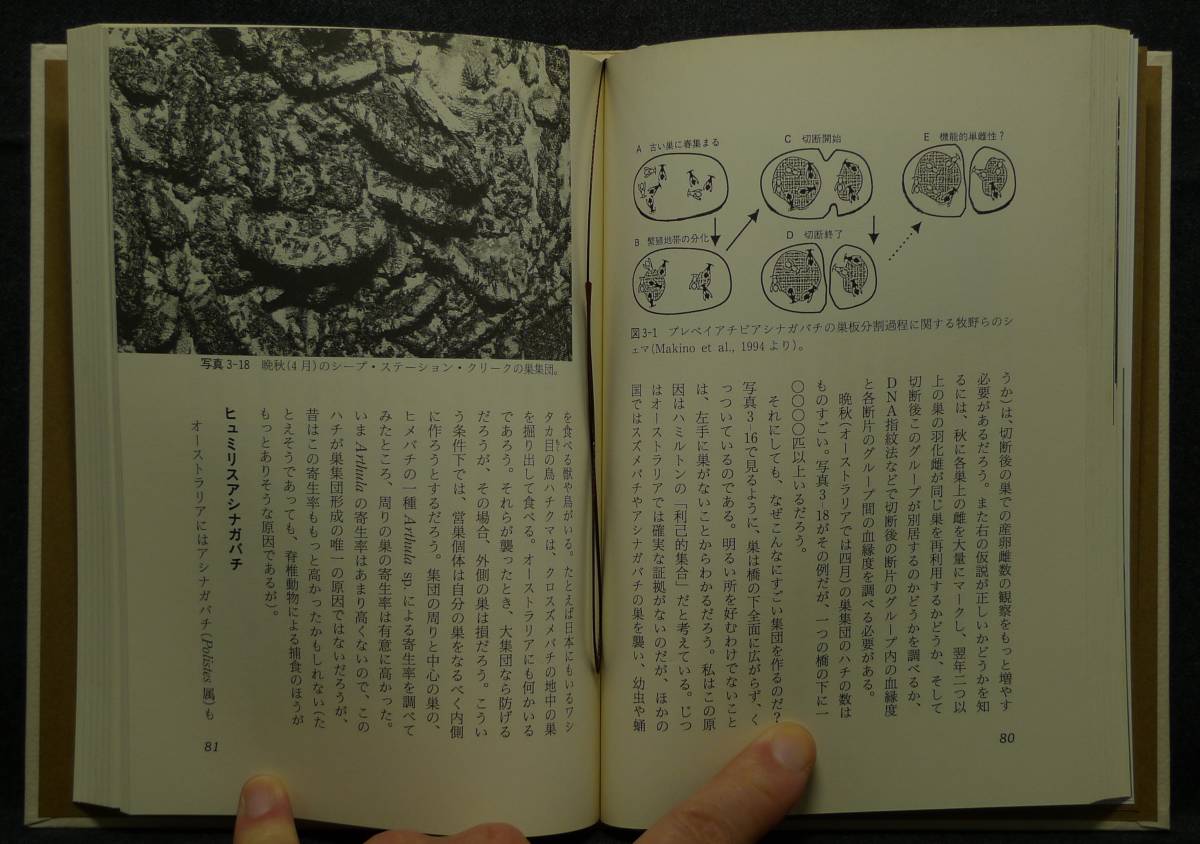 A 古い巣に春集まる
B 繁殖地帯の分化
C 切断開始
D 切断終了
E 機能的単雌性？
図3-1 プレベイアチビアシナガバチの巣板分割過程に関する牧野らのシ
ェマ(Makino et al., 1994より)。
うか)は、切断後の巣での産卵雌数の観察をもっと増やす
必要があるだろう。また右の仮説が正しいかどうかを知
るには、秋に各巣上の雌を大量にマークし、翌年二つ以
上の巣の羽化雌が同じ巣を再利用するかどうか、そして
切断後このグループが別居するのかどうかを調べるか、
DNA指紋法などで切断後の断片のグループ内の血縁度
と各断片のグループ間の血縁度を調べる必要がある。
晩秋(オーストラリアでは四月)の巣集団のハチの数は
ものすごい。写真3-18がその例だが、一つの橋の下に一
〇〇〇〇匹以上いるだろう。
それにしても、なぜこんなにすごい集団を作るのだ？
写真3-16で見るように、巣は橋の下全面に広がらず、く
っついているのである。明るい所を好むわけでないこと
は、左手に巣がないことからわかるだろう。私はこの原
因はハミルトンの「利己的集合」だと考えている。じつ
はオーストラリアでは確実な証拠がないのだが、ほかの
国ではスズメバチやアシナガバチの巣を襲い、幼虫や蛹
80
写真3-18 晩秋(4月)のシープ・ステーション・クリークの巣集団。
を食べる獣や鳥がいる。たとえば日本にもいるワシ
タカ目の鳥ハチクマは、クロスズメバチの地中の巣
を掘り出して食べる。オーストラリアにも何かいる
であろう。それらが襲ったとき、大集団なら防げる
だろうが、その場合、外側の巣は損だろう。こうい
う条件下では、営巣個体は自分の巣をなるべく内側
に作ろうとするだろう。集団の周りと中心の巣の、
ヒメバチの一種Arthula sp.による寄生率を調べて
みたところ、周りの巣の寄生率は有意に高かった。
いまArthulaの寄生率はあまり高くないので、この
ハチが巣集団形成の唯一の原因ではないだろうが、
昔はこの寄生率ももっと高かったかもしれない(た
とえそうであっても、脊椎動物による捕食のほうが
もっとありそうな原因であるが)。
ヒュミリスアシナガバチ
オーストラリアにはアシナガバチ(Polistes属)も
81